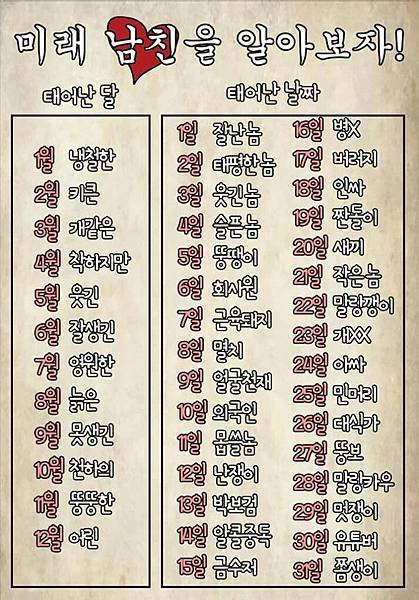 미래 남친을 알아보자!
태어난 달
1월 냉철한
2월 키큰
3월 개같은
4월 착하지만
5월 웃긴
6월 잘생긴
7월 영원한
8월 늙은
9월 못생긴
10월 천하의
11월 뚱뚱한
12월 어린
태어난 날짜
1일 잘난놈
2일 태평한놈
3일 웃긴놈
4일 슬픈놈
5일 뚱땡이
6일 회사원
7일 근육돼지
8일 멸치
9일 얼굴천재
10일 외국인
11일 몹쓸놈
12일 난쟁이
13일 박보검
14일 알콜중독
15일 금수저
16일 병X
17일 버러지
18일 인싸
19일 짠돌이
20일 새끼
21일 작은놈
22일 말랑깽이
23일 개XX
24일 아싸
25일 민머리
26일 대식가
27일 뚱보
28일 말랑카우
29일 멋쟁이
30일 유튜버
31일 쫌생이